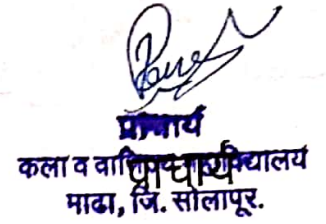 प्राचार्य
कला व वाणिज्य महाविद्यालय
प्राचार्य
माढा, जि. सोलापूर.